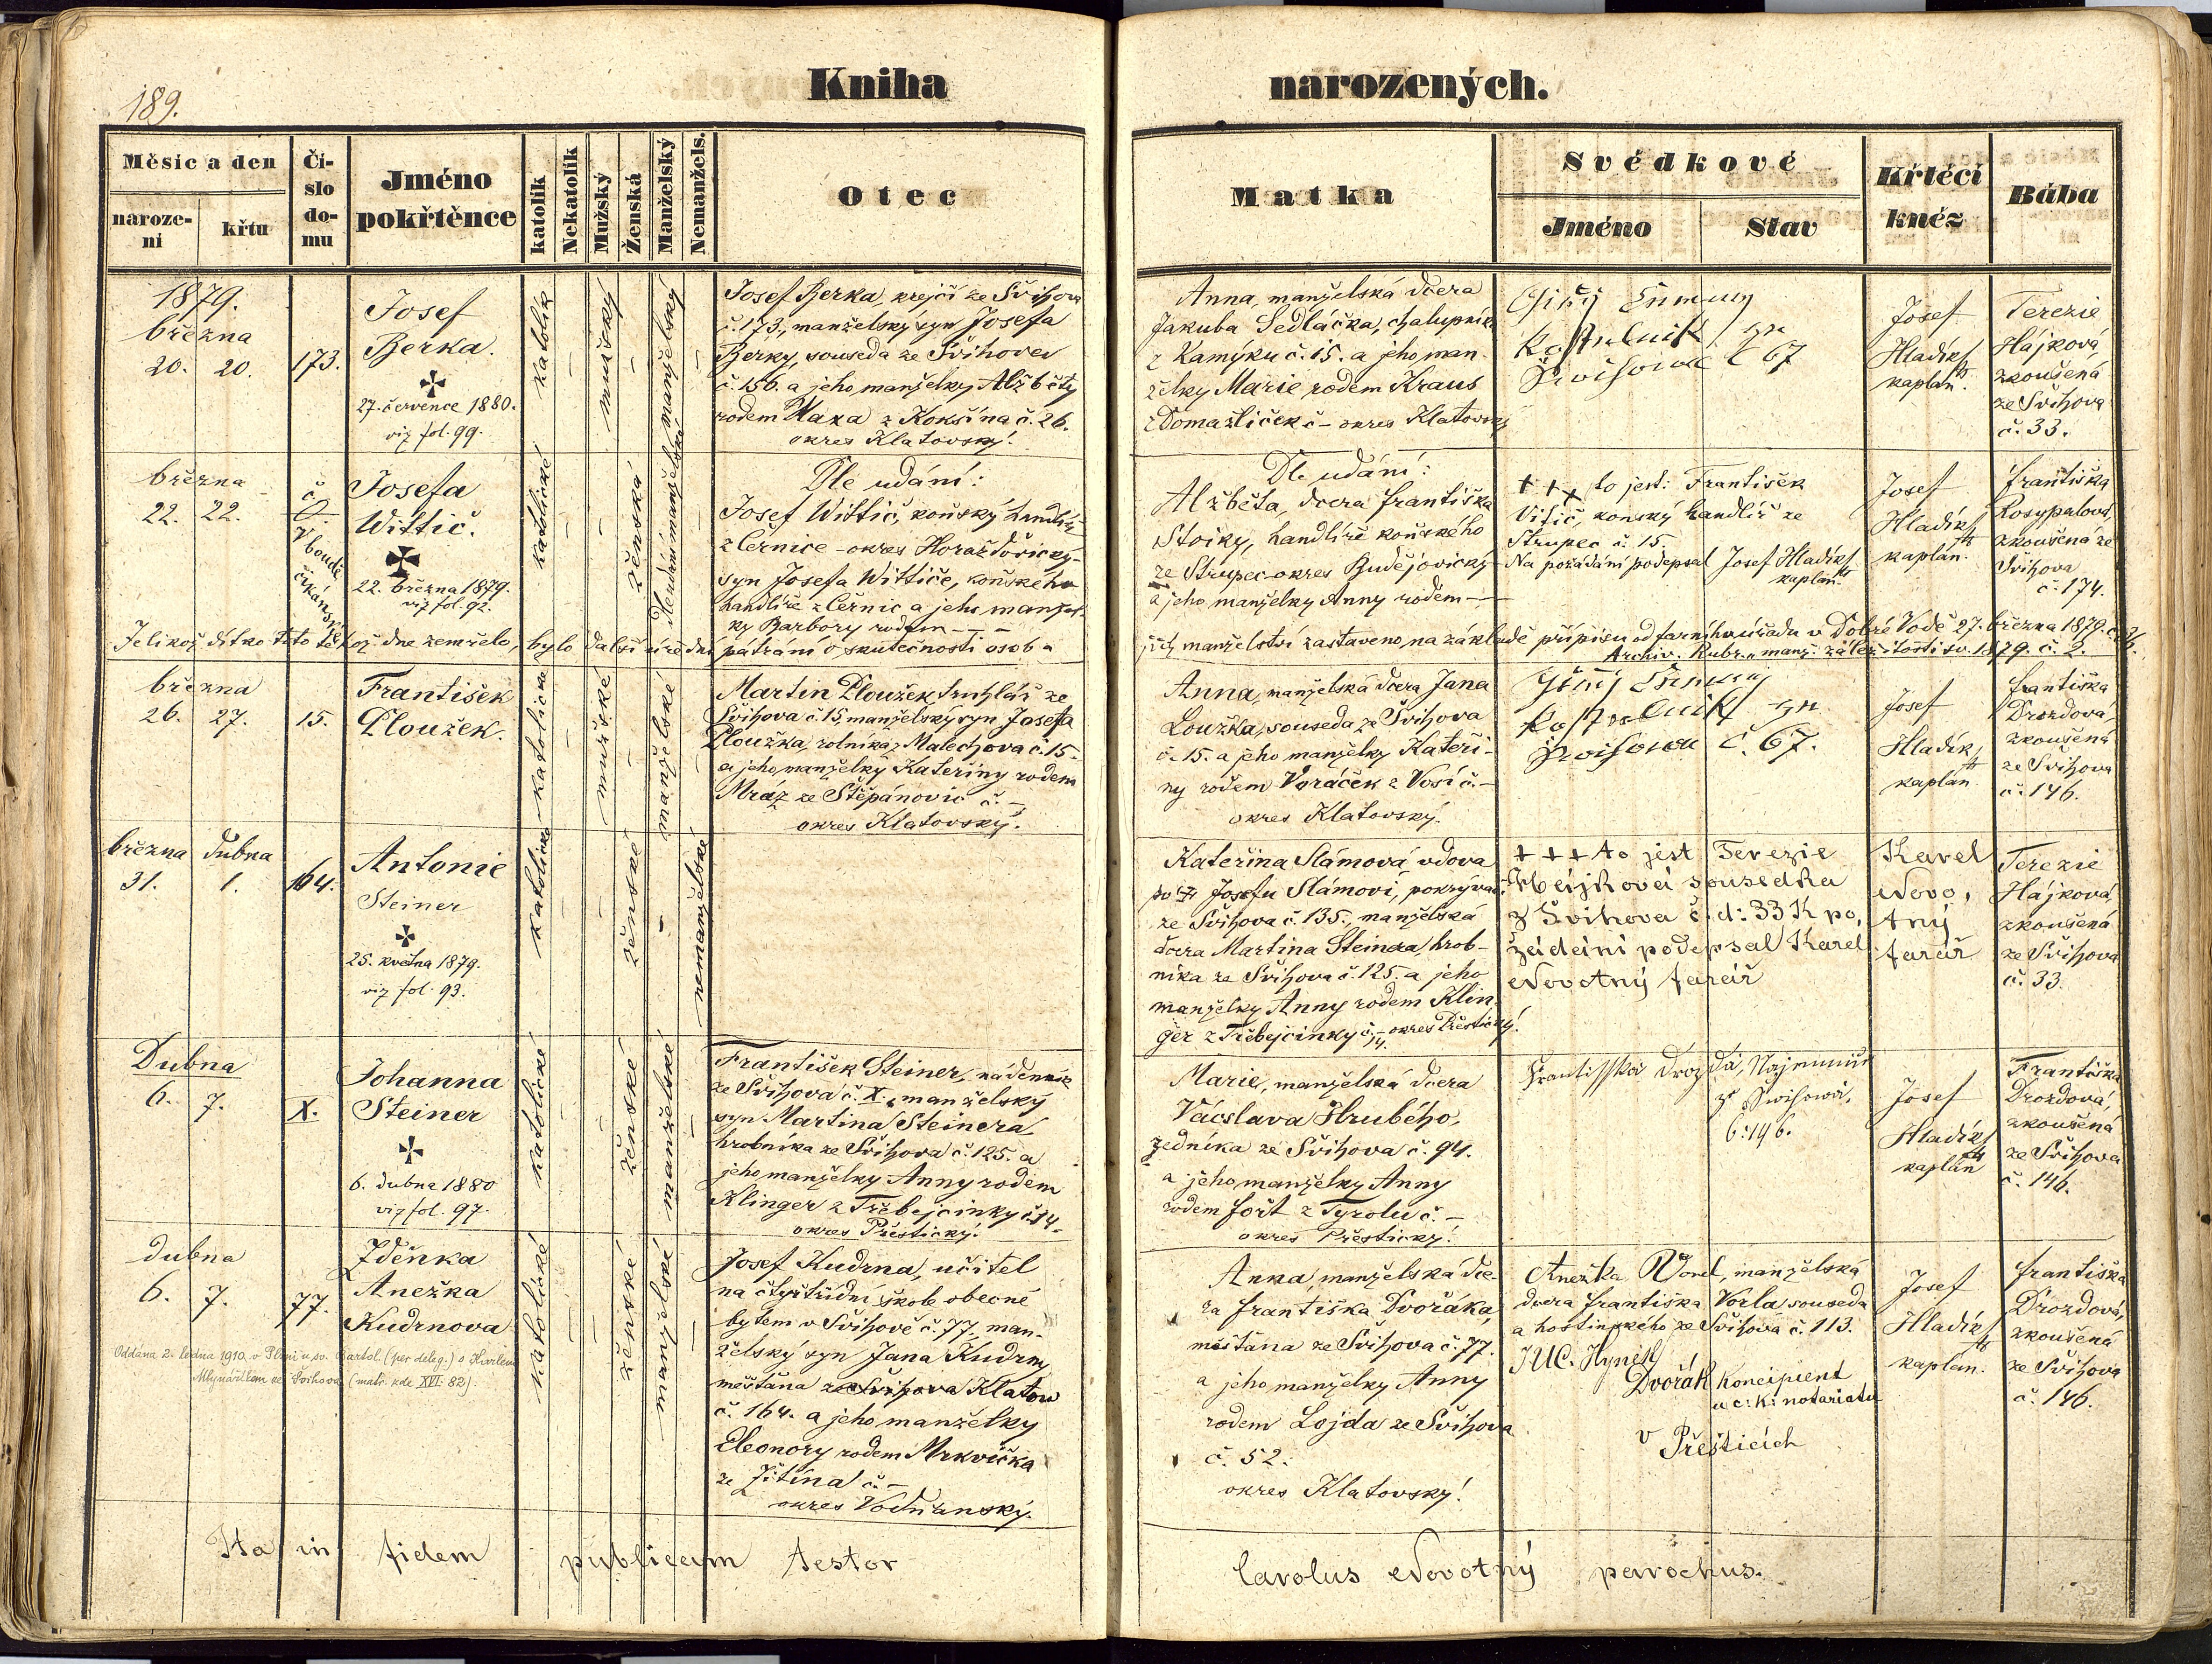 189.
Kniha narozených.
Měsíc a den
narozeni
křtu
Číslo domu
Jméno pokřtěnce
katolík
Nekatolík
Mužský
Ženská
Manželský
Nemanžels.
Otec
Matka
Svědkové
Jméno
Stav
Křtécí kněz
Bába
1879.
března
20. 20. 173.
Josef
Berka.
27. července 1880.
viz fol. 99.
katolík
mužský
manželský
Josef Berka, krejčí ze Švihova
č. 173., manželský syn Josefa
Berky, souseda ze Švihova
č. 156. a jeho manželky Alžběty
rodem Waxa z Kokšína č. 26.
okres Klatovský.
Anna, manželská dcera
Jakuba Sedláčka, chalupníka
z Kamýku č. 15. a jeho man-
želky Marie rodem Kraus
z Domažliček č – okres Klatovský
č 67
Josef
Hladík
kaplan.
Terezie
Hájková,
zkoušená
ze Švihova
č. 33.
března
22. 22.
č. 0.
v boudě
cikánské
Josefa
Wittič.
22. března 1879.
viz fol. 92.
katolické
ženská
Dle udání:
Josef Wittič, koňský handlíř
z Černice – okres Horažďovický,
syn Josefa Wittiče, koňského
handlíře z Černic a jeho manžel-
ky Barbory rodem – – –
Dle udání:
Alžběta, dcera Františka
Stoiky, handlíře koňského
ze Strupec – okres Budějovický
a jeho manželky Anny rodem –
+++ to jest: František
Vitič, konský handlíř ze
Strupec č. 15.
Na požádání podepsal Josef Hladík
kaplan.
Josef
Hladík
kaplán.
Františka
Rosypalová,
zkoušená ze
Švihova
č. 174.
Jelikož dítko toto téhož dne zemřelo, bylo další úřední pátrání o skutečnosti osob a
jich manželství zastaveno, na základě přípisu od farního úřadu v Dobré Vodě 27. března 1879.
Archiv. Rubr. „manž. záležitosti sv. 1879. č. 2.
března
26. 27. 15.
František
Ploužek.
katolické
mužské
manželské
Martin Ploužek truhlář ze
Švihova č. 15, manželský syn Josefa
Ploužka, rolníka z Malechova č. 15
a jeho manželky Kateřiny rodem
Mráz ze Štěpánovic č. –
okres Klatovský.
Anna, manželská dcera Jana
Loužka, souseda ze Švihova
č. 15. a jeho manželky Kateři-
ny rodem Voráček z Vosí č. –
okres Klatovský.
č. 67.
Josef
Hladík,
kaplán
Františka
Drozdová,
zkoušená
ze Švihova
č. 146.
března dubna
31. 1. 164.
Antonie
Steiner
25. května 1879.
viz fol. 93.
katolické
ženské
nemanželské
Kateřina Slámová vdova
po Josefu Slámovi, pokrývači
ze Švihova č. 135. manželská
dcera Martina Steinera, hrob-
níka ze Švihova č. 125. a jeho
manželky Anny rodem Klin-
ger z Třebejcinky č. 14. – okres Přeštický.
+++ to jest Terezie
Hájková sousedka
z Švihova č. d: 33 K po,
žádání podepsal Karel
Novotný farář
Karel
Novo,
tný
farář
Terezie
Hájková,
zkoušená
ze Švihova
č. 33.
Dubna
6. 7. X.
Johanna
Steiner
6. dubna 1880
viz fol. 97.
katolické
ženské
manželské
František Steiner, nádenník
ze Švihova č. X., manželský
syn Martina Steinera
hrobníka ze Švihova č. 125. a
jeho manželky Anny rodem
Klinger z Třebejcinky č. 14 –
okres Přeštický.
Marie, manželská dcera
Václava Hrubého,
zedníka ze Švihova č. 94.
a jeho manželky Anny
rodem Fořt z Tyrolu č. –
okres Přeštický.
Josef
Hladík
kaplán
Františka
Drozdová,
zkoušená
ze Švihova
č. 146.
dubna
6. 7. 77.
Zdeňka
Anežka
Kudrnova
Oddána 2. ledna 1910. v Plzni u sv. Bartol. (per deleg.) s Karlem
Mlynaříkem ze Švihova (matr. zde XVI. 82).
katolické
ženské
manželské
Josef Kudrna, učitel
na čtyřtřídní škole obecné
bytem v Švihově č. 77, man-
želský syn Jana Kudrny
měšťana ze Švihova Klatov
č. 164. a jeho manželky
Eleonory rodem Mrkvička
ze Žitína č. –
okres Vodňanský.
Anna, manželská dce-
ra Františka Dvořáka,
měšťana ze Švihova č. 77.
a jeho manželky Anny
rodem Lojda ze Švihova
č. 52.
okres Klatovský.
Anežka Vorel, manželská
dcera Františka Vorla souseda
a hostinského ze Švihova č. 113.
JUC. Hynek
Dvořák koncipient
u c: k: notariatu
v Přešticích
Josef
Hladík
kaplan.
Františka
Drozdová,
zkoušená
ze Švihova
č. 146.
Ita in fidem publicam testor
Carolus Novotný parochus.